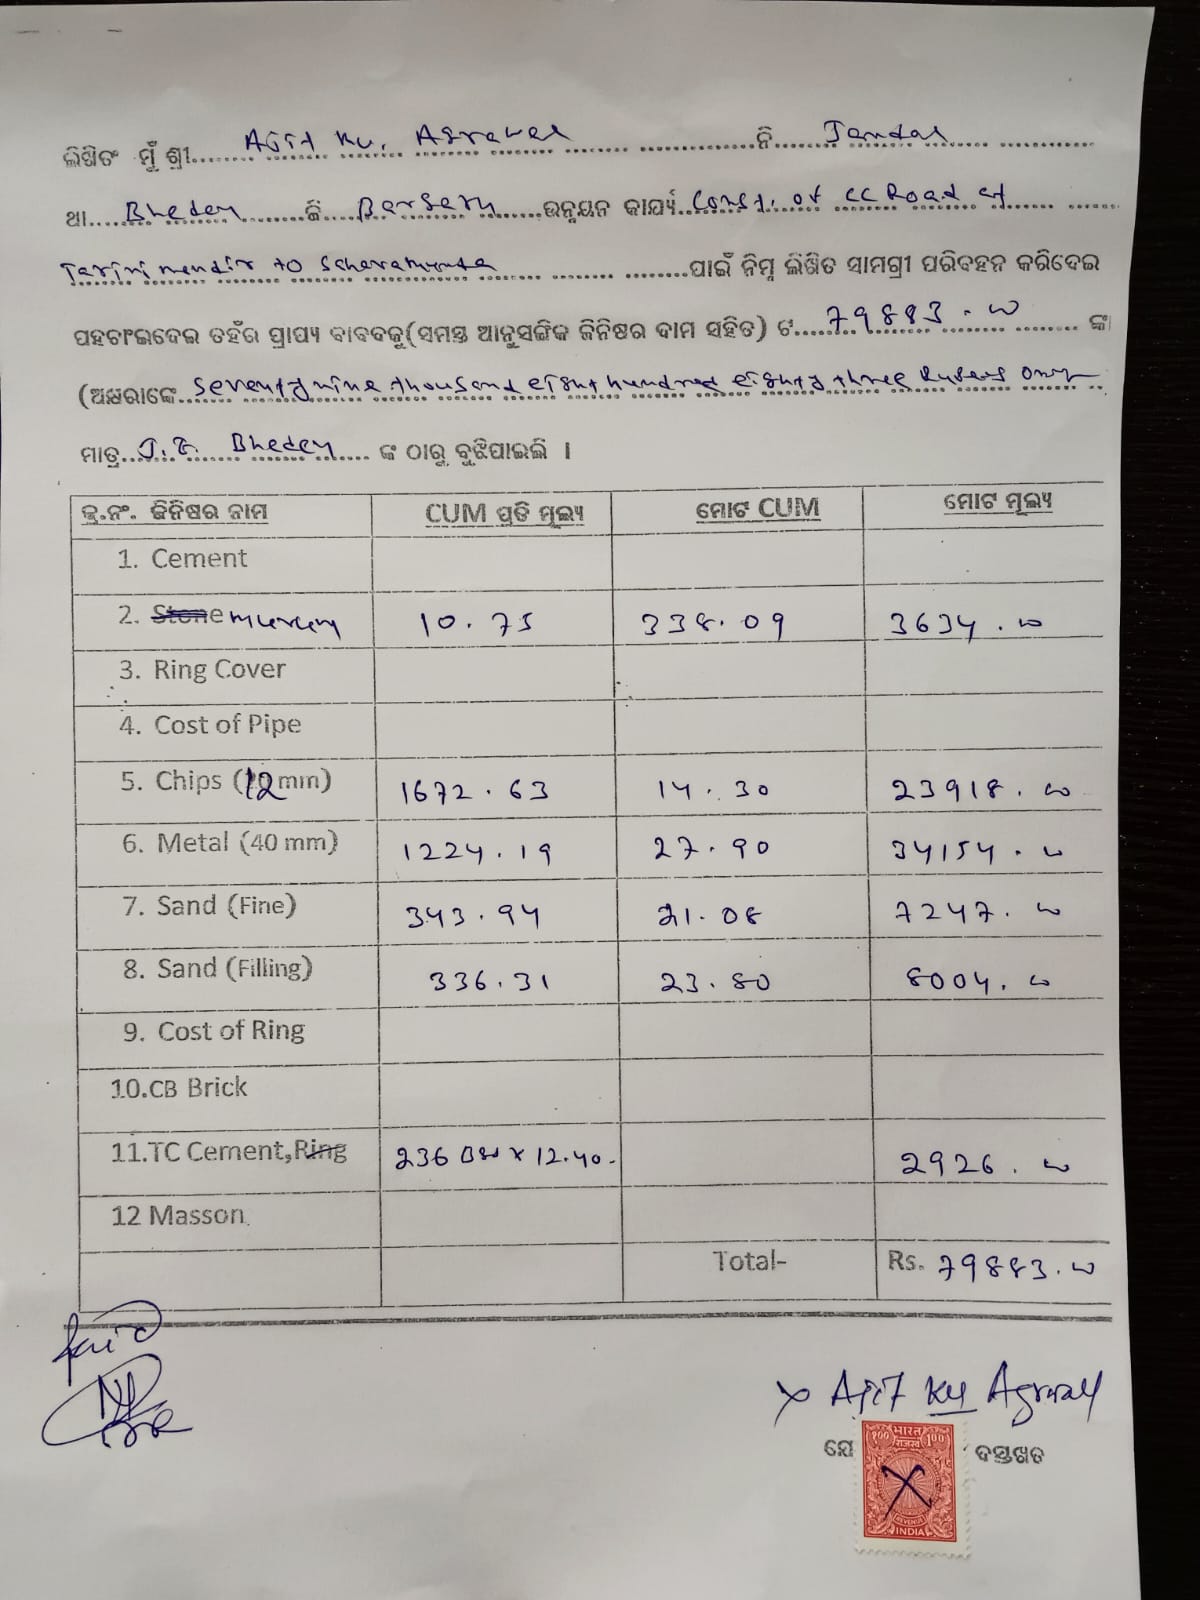 ଲିଖିତଂ ମୁଁ ଶ୍ରୀ....... Ajit Ku. Agrawal ....... ନି..... Jamdal .......
ଥା.... Bheden ....... ଜି Bargarh ...... ଉନ୍ନୟନ କାର୍ଯ୍ୟ.. Const. of CC Road at .......
Tarini mandir to ....... ପାଇଁ ନିମ୍ନ ଲିଖିତ ସାମଗ୍ରୀ ପରିବହନ କରିଦେଇ
ପହଚାଂଇଦେଇ ତହିଁର ପ୍ରାପ୍ୟ ବାବଦକୁ(ସମସ୍ତ ଆନୁସଙ୍ଗିକ ଜିନିଷର ଦାମ ସହିତ) ଟ..... 79883.00 ....... ଙ୍କା
(ଅକ୍ଷରାଙ୍କେ.. Seventy nine thousand eight hundred eighty three Rupees only ..
ମାତ୍ର... J.E. Bheden .... ଙ୍କ ଠାରୁ ବୁଝିପାଇଲି ।
କ୍ର.ନଂ. ଜିନିଷର ନାମ CUM ପ୍ରତି ମୂଲ୍ୟ ମୋଟ CUM ମୋଟ ମୂଲ୍ୟ
1. Cement
2. Stone murum 10.75 338.09 3634.00
3. Ring Cover
4. Cost of Pipe
5. Chips (12 mm) 1672.63 14.30 23918.00
6. Metal (40 mm) 1224.19 27.90 34154.00
7. Sand (Fine) 343.94 21.08 7247.00
8. Sand (Filling) 336.31 23.80 8004.00
9. Cost of Ring
10.CB Brick
11.TC Cement,Ring 236 Bag x 12.40 2926.00
12 Masson
Total- Rs. 79883.00
Paid
x Ajit Ku Agrwal
ଯେ ଦସ୍ତଖତ
भारत
राजस्व
100 1.00
REVENUE
INDIA